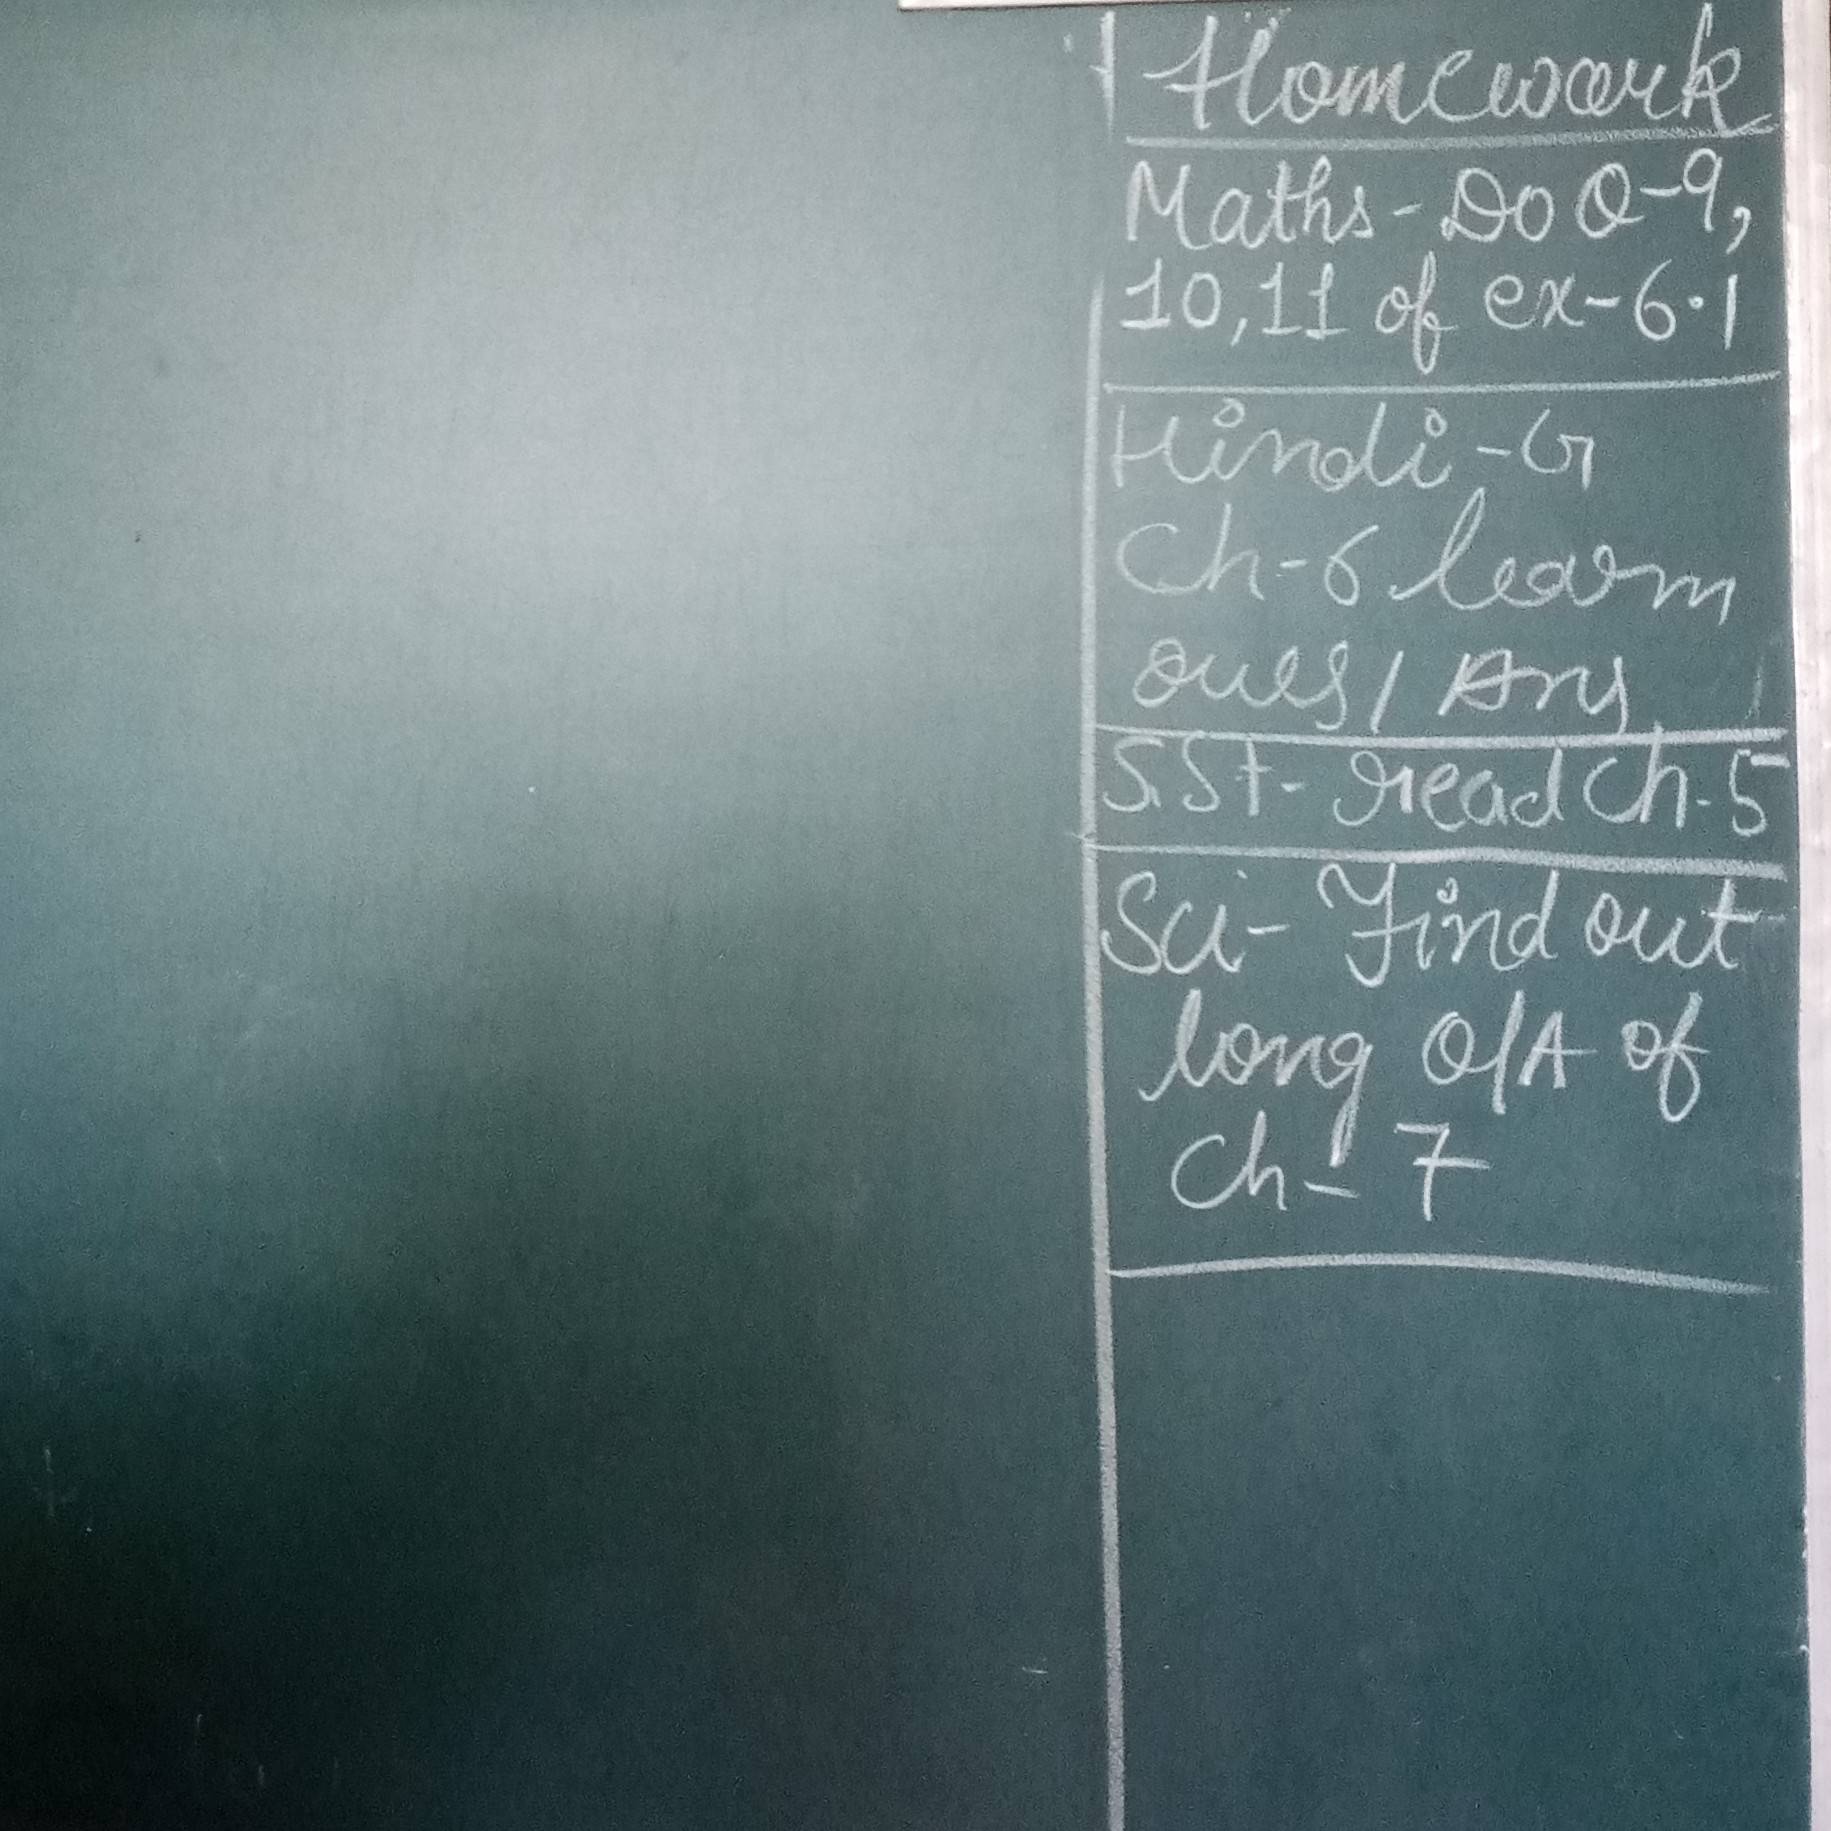 Homework
Maths - Do Q-9,
10,11 of ex-6.1
Hindi - G
Ch-6 learn
Ques/Ans
S.St- read Ch-5
Sci- Find out
long Q/A of
Ch- 7